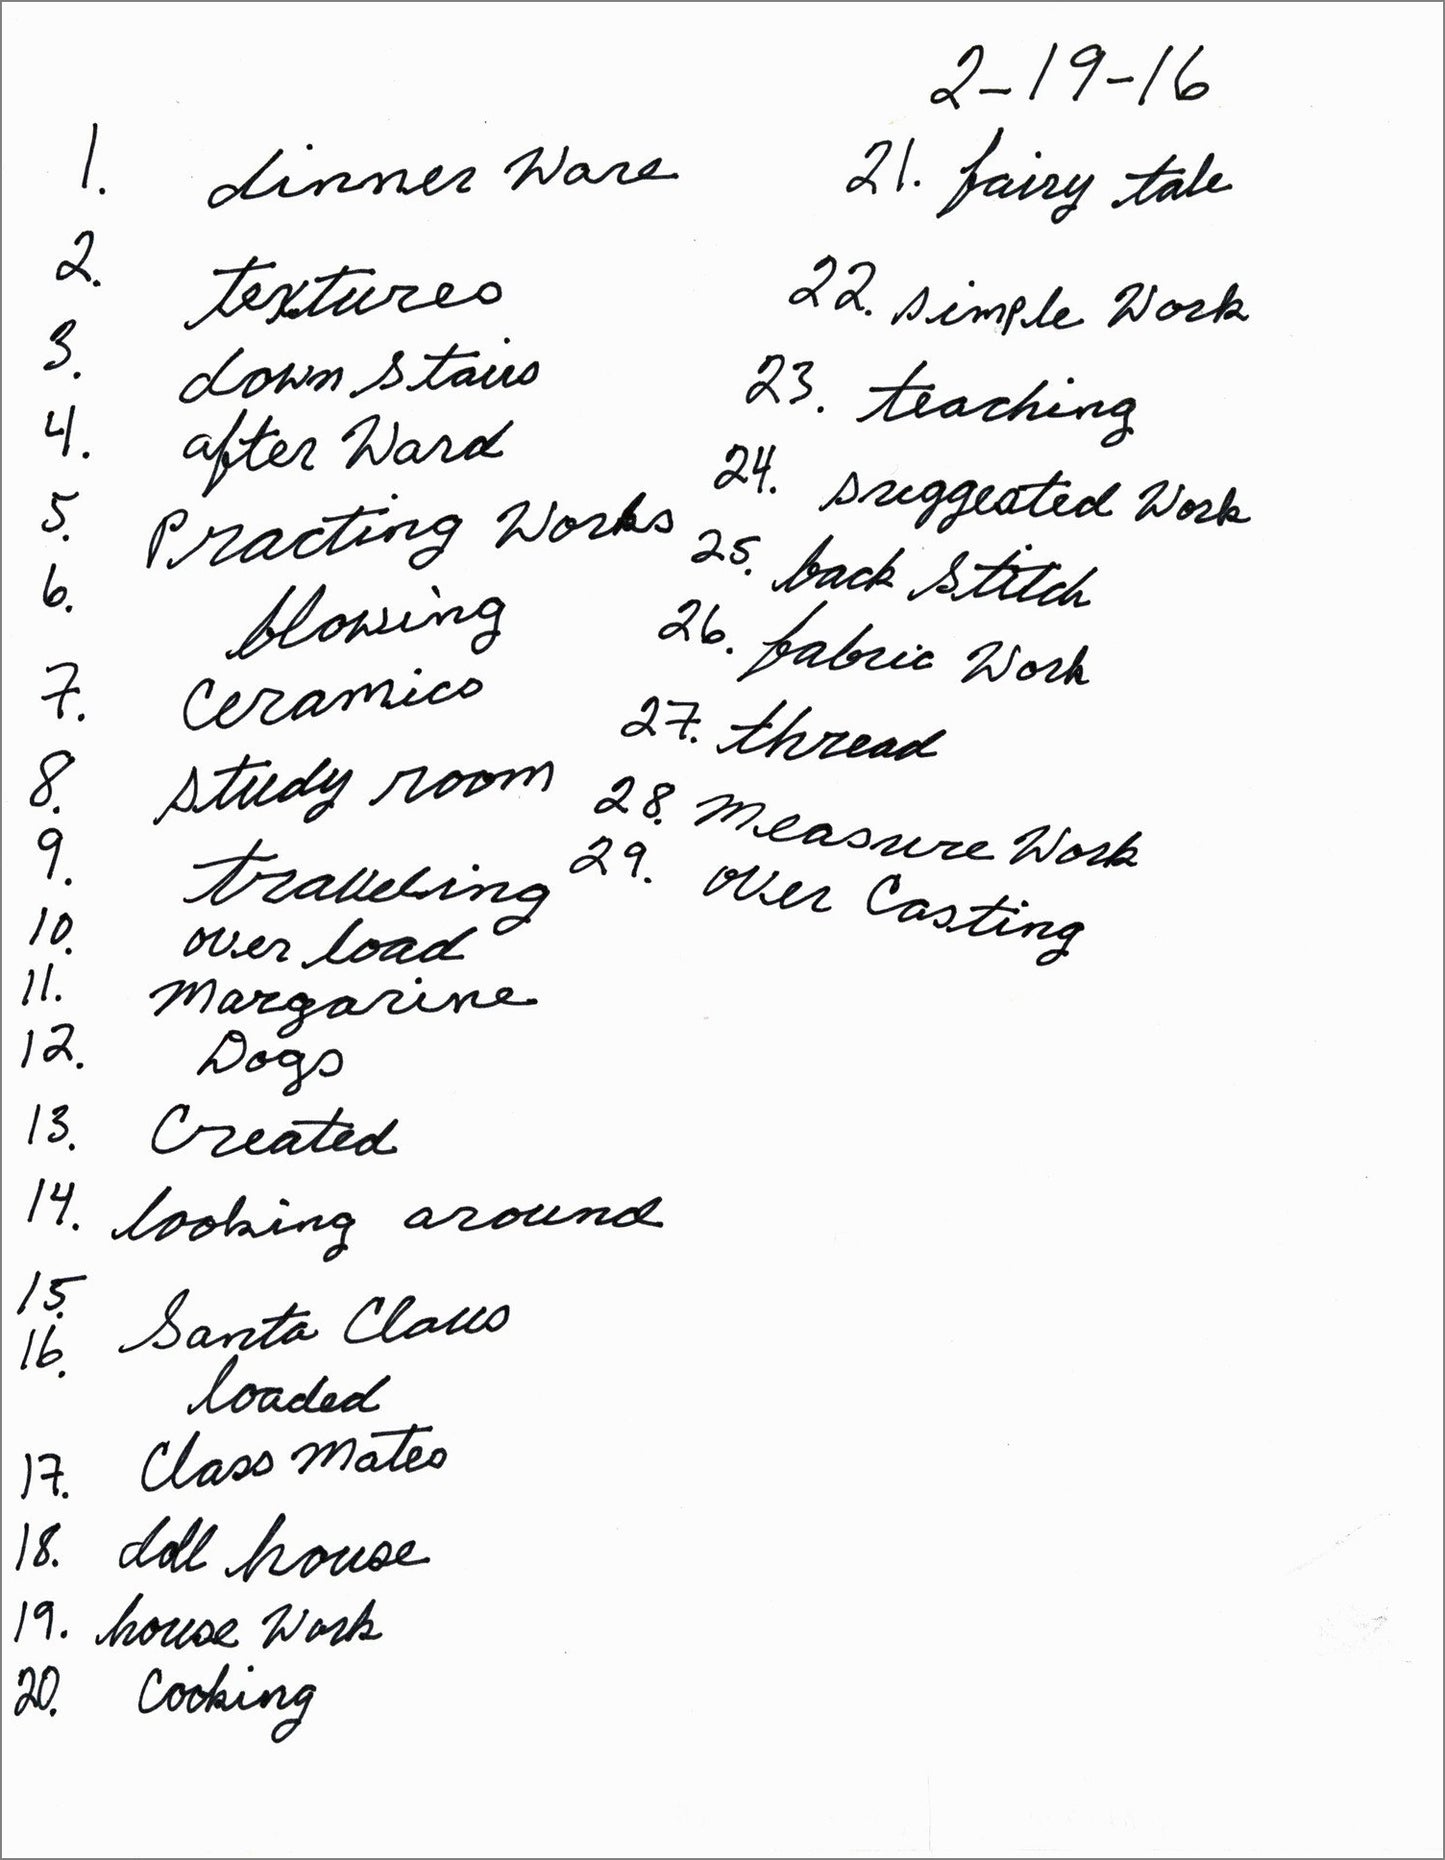 2-19-16
1. dinner Ware
2. textures
3. down Stairs
4. after Ward
5. Practing Works
6. blowing
7. Ceramics
8. study room
9. traveling
10. over load
11. Margarine
12. Dogs
13. Created
14. looking around
15. Santa Claus
16. loaded
17. Class Mates
18. doll house
19. house Work
20. Cooking
21. fairy tale
22. simple Work
23. teaching
24. suggested Work
25. back Stitch
26. fabric Work
27. thread
28. Measure Work
29. over Casting